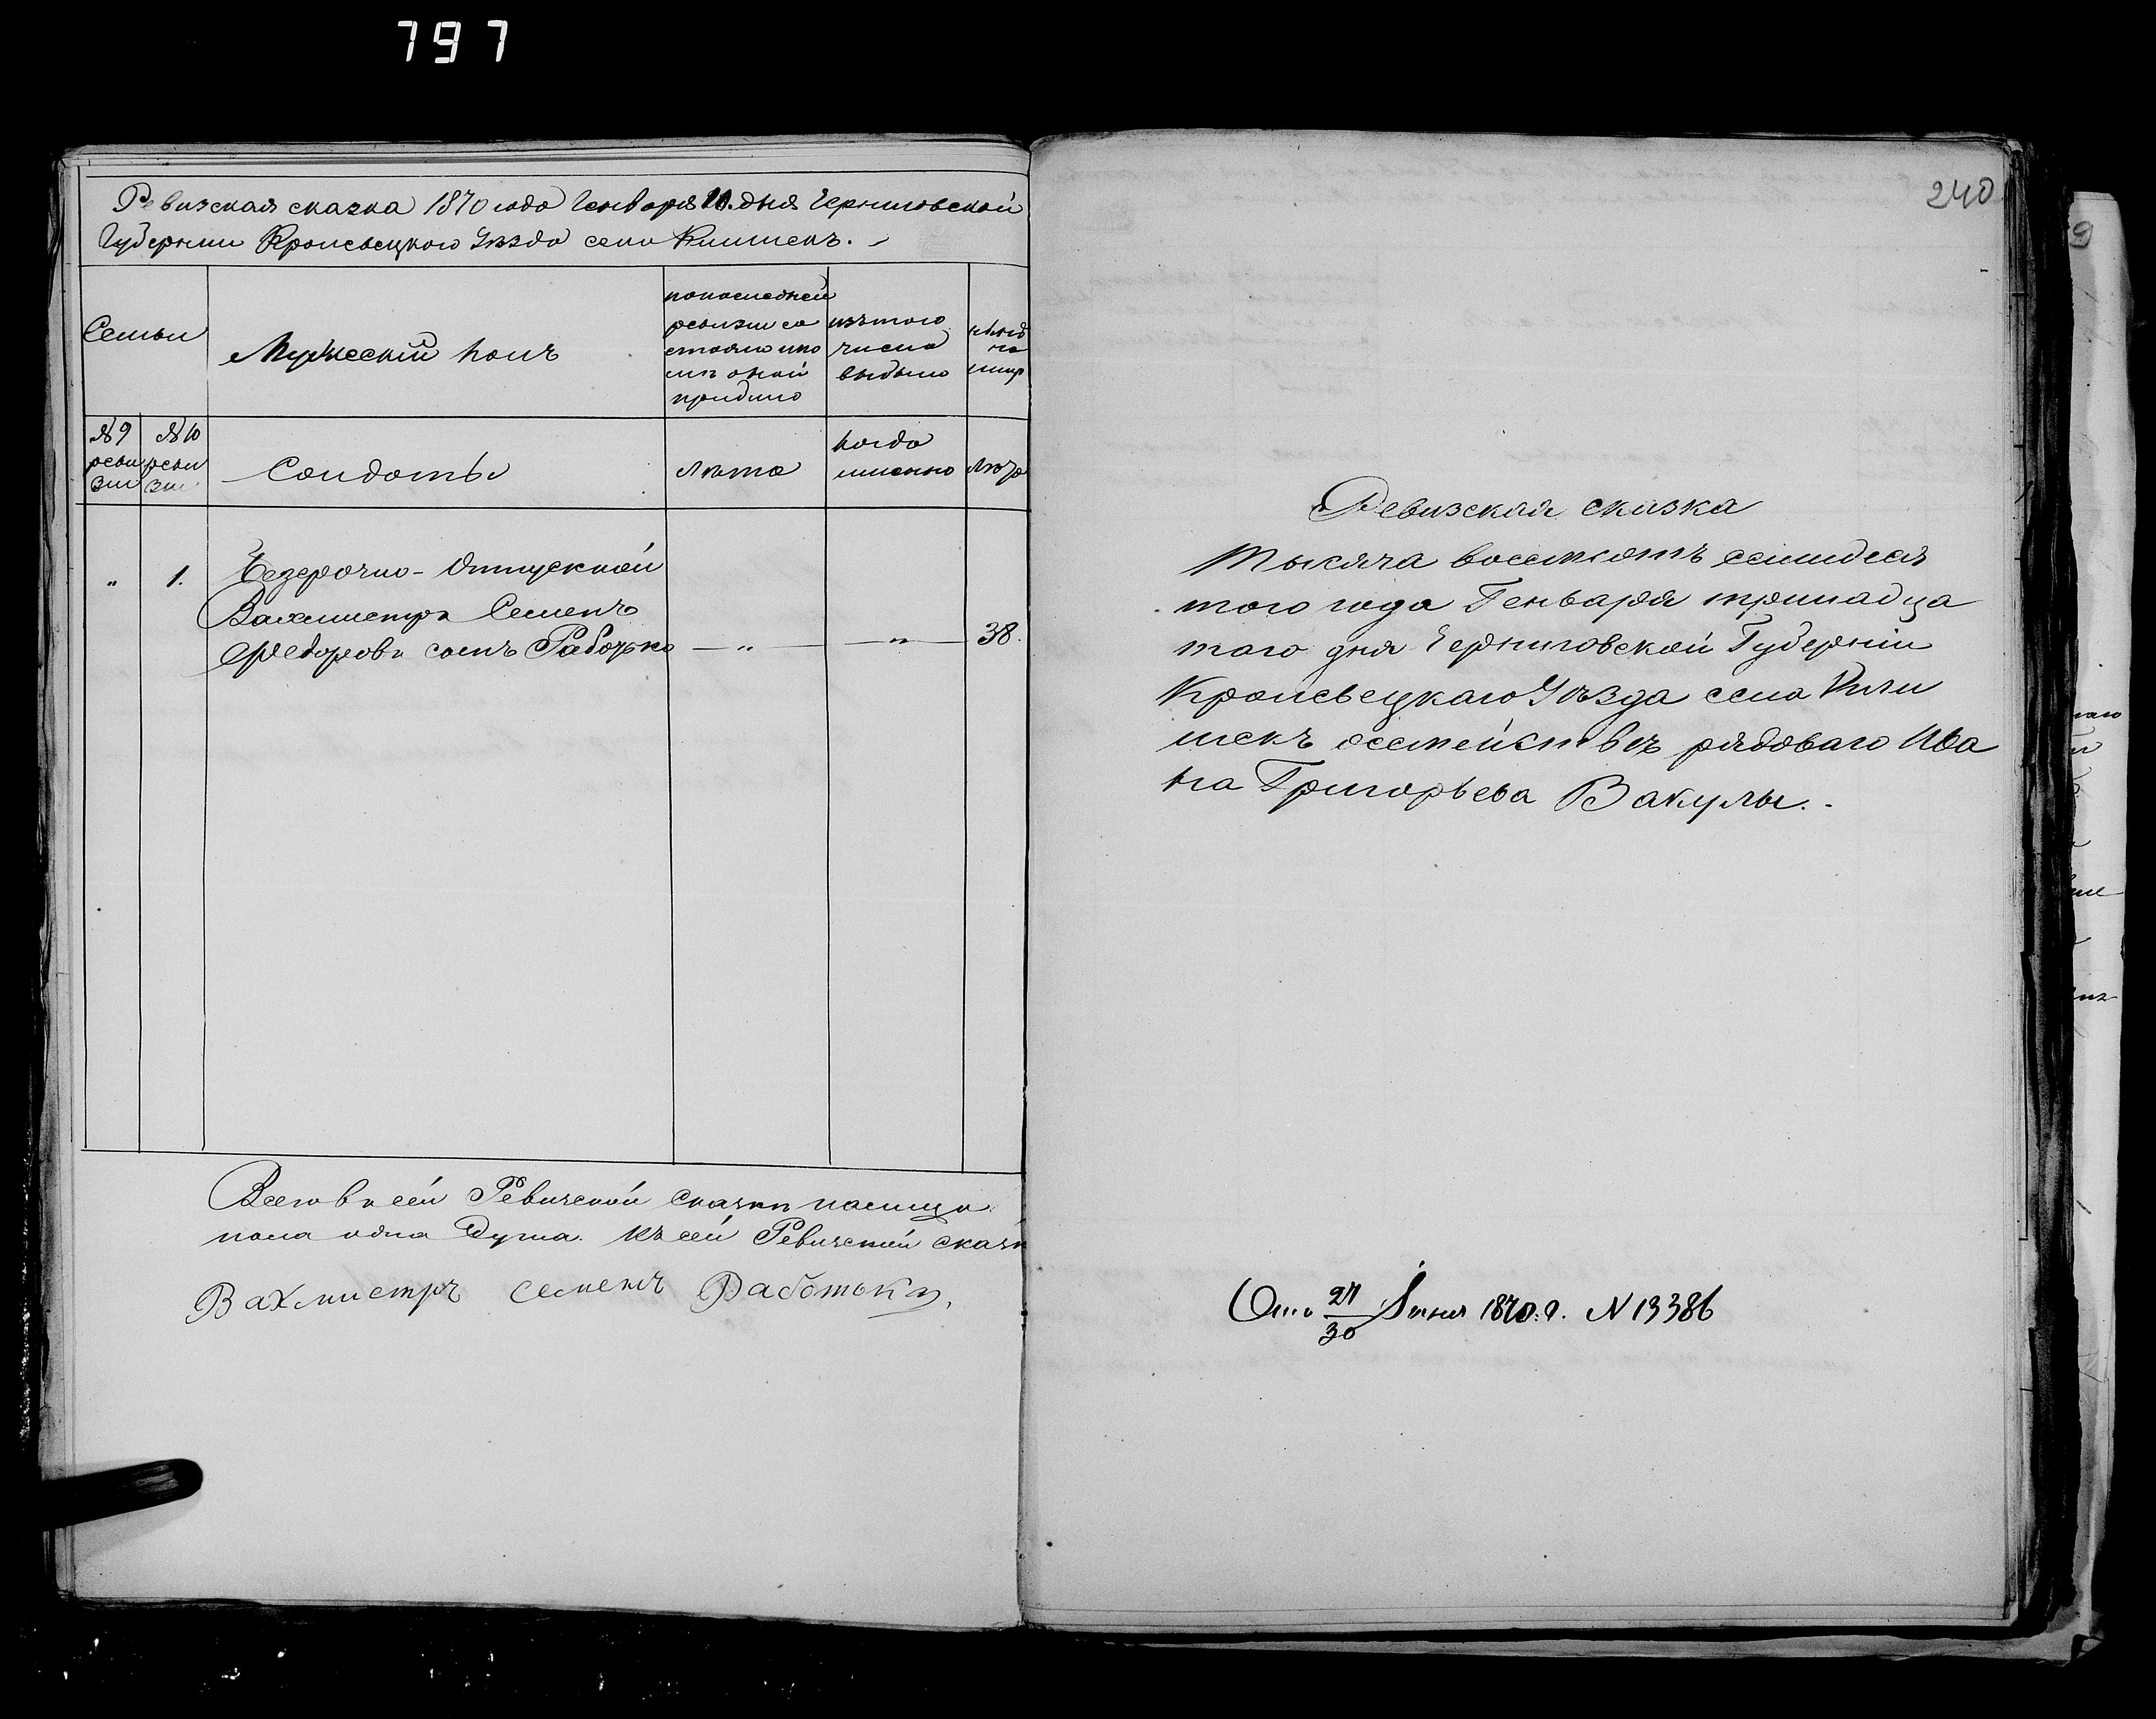 797
Ревизская сказка 1870 года Генваря 10. дня Черниговской
Губернии Кролевецкого Уезда села
Семьи
Мужеский полъ
по последней
ревизии со
стояло и по
слѣ оной
прибыло
изъ того
числа
выбыло
№ 9
реви
зии
№ 10
реви
зии
Солдаты
лѣта
когда
именно
„ 1. Безсрочно-Отпускной
Вахмистръ Семенъ
Федоровъ сынъ — „ — — „ — 38.
Всего въ сей Ревизской Сказки
пола одна душа. Къ сей Ревизской сказк
Вахмистръ Семенъ
240
Ревизская сказка
Тысяча восемсотъ семидеся
того года Генваря тринадца
таго дня Черниговской Губерніи
Кролевецкаго Уѣзда села
шекъ осемействѣ рядоваго Ива
на Григорьева Вакулы.
27
30
1870. г. N 13386